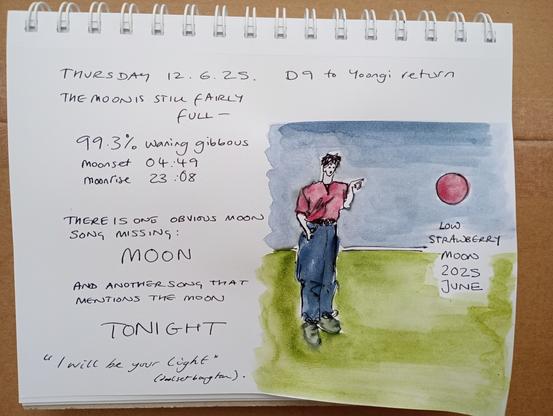 THURSDAY 12.6.25. D9 to Yoongi return
THE MOON IS STILL FAIRLY
FULL —
99.3% waning gibbous
moonset 04:49
moonrise 23:08
THERE IS ONE OBVIOUS MOON
SONG MISSING:
MOON
AND ANOTHER SONG THAT
MENTIONS THE MOON
TONIGHT
"I will be your light"
LOW
STRAWBERRY
MOON
2025
JUNE